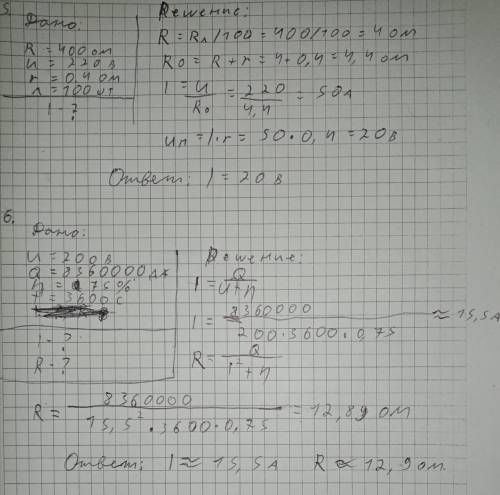 5.
Дано:
R = 400 ом
u = 220 В
r = 0,4 ом
n = 100 шт
I - ?
Решение:
R = Rл/100 = 400/100 = 4 ом
R0 = R + r = 4 + 0,4 = 4,4 ом
I = u/R0 = 220/4,4 = 50А
uп = I · r = 50 · 0,4 = 20 В
Ответ: I = 20 В
6.
Дано:
u = 200 В
Q = 8360000 Дж
η = 75%
t = 3600 с
I - ?
R - ?
Решение:
I = Q/utη
I = 8360000/200·3600·0,75 ≈ 15,5А
R = Q/i²tη
R = 8360000/15,5²·3600·0,75 = 12,89 ом
Ответ: I ≈ 15,5 А R ≈ 12,9 ом.